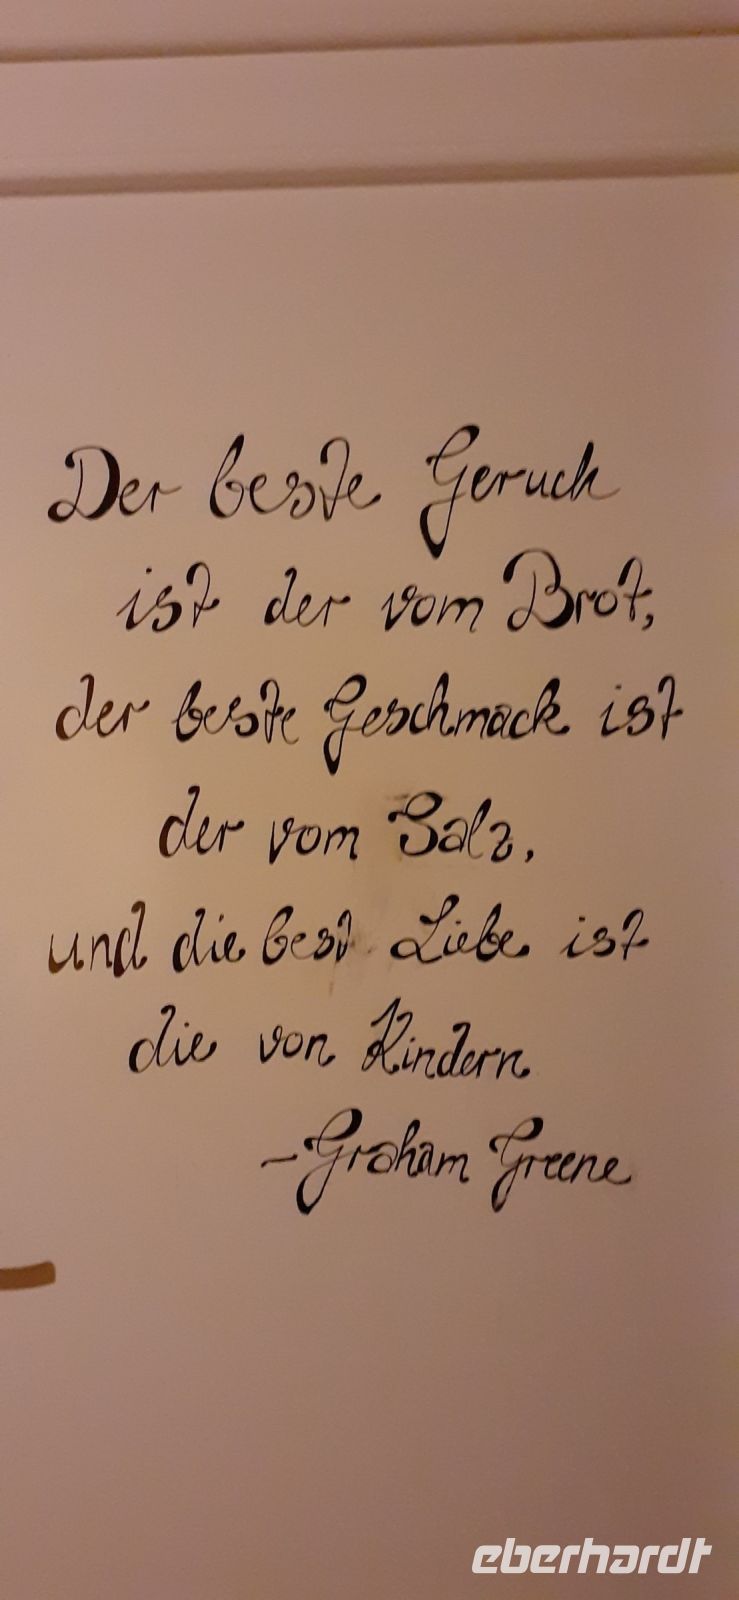 Der beste Geruch
ist der vom Brot,
der beste Geschmack ist
der vom Salz,
und die best Liebe ist
die von Kindern
- Graham Greene
eberhardt